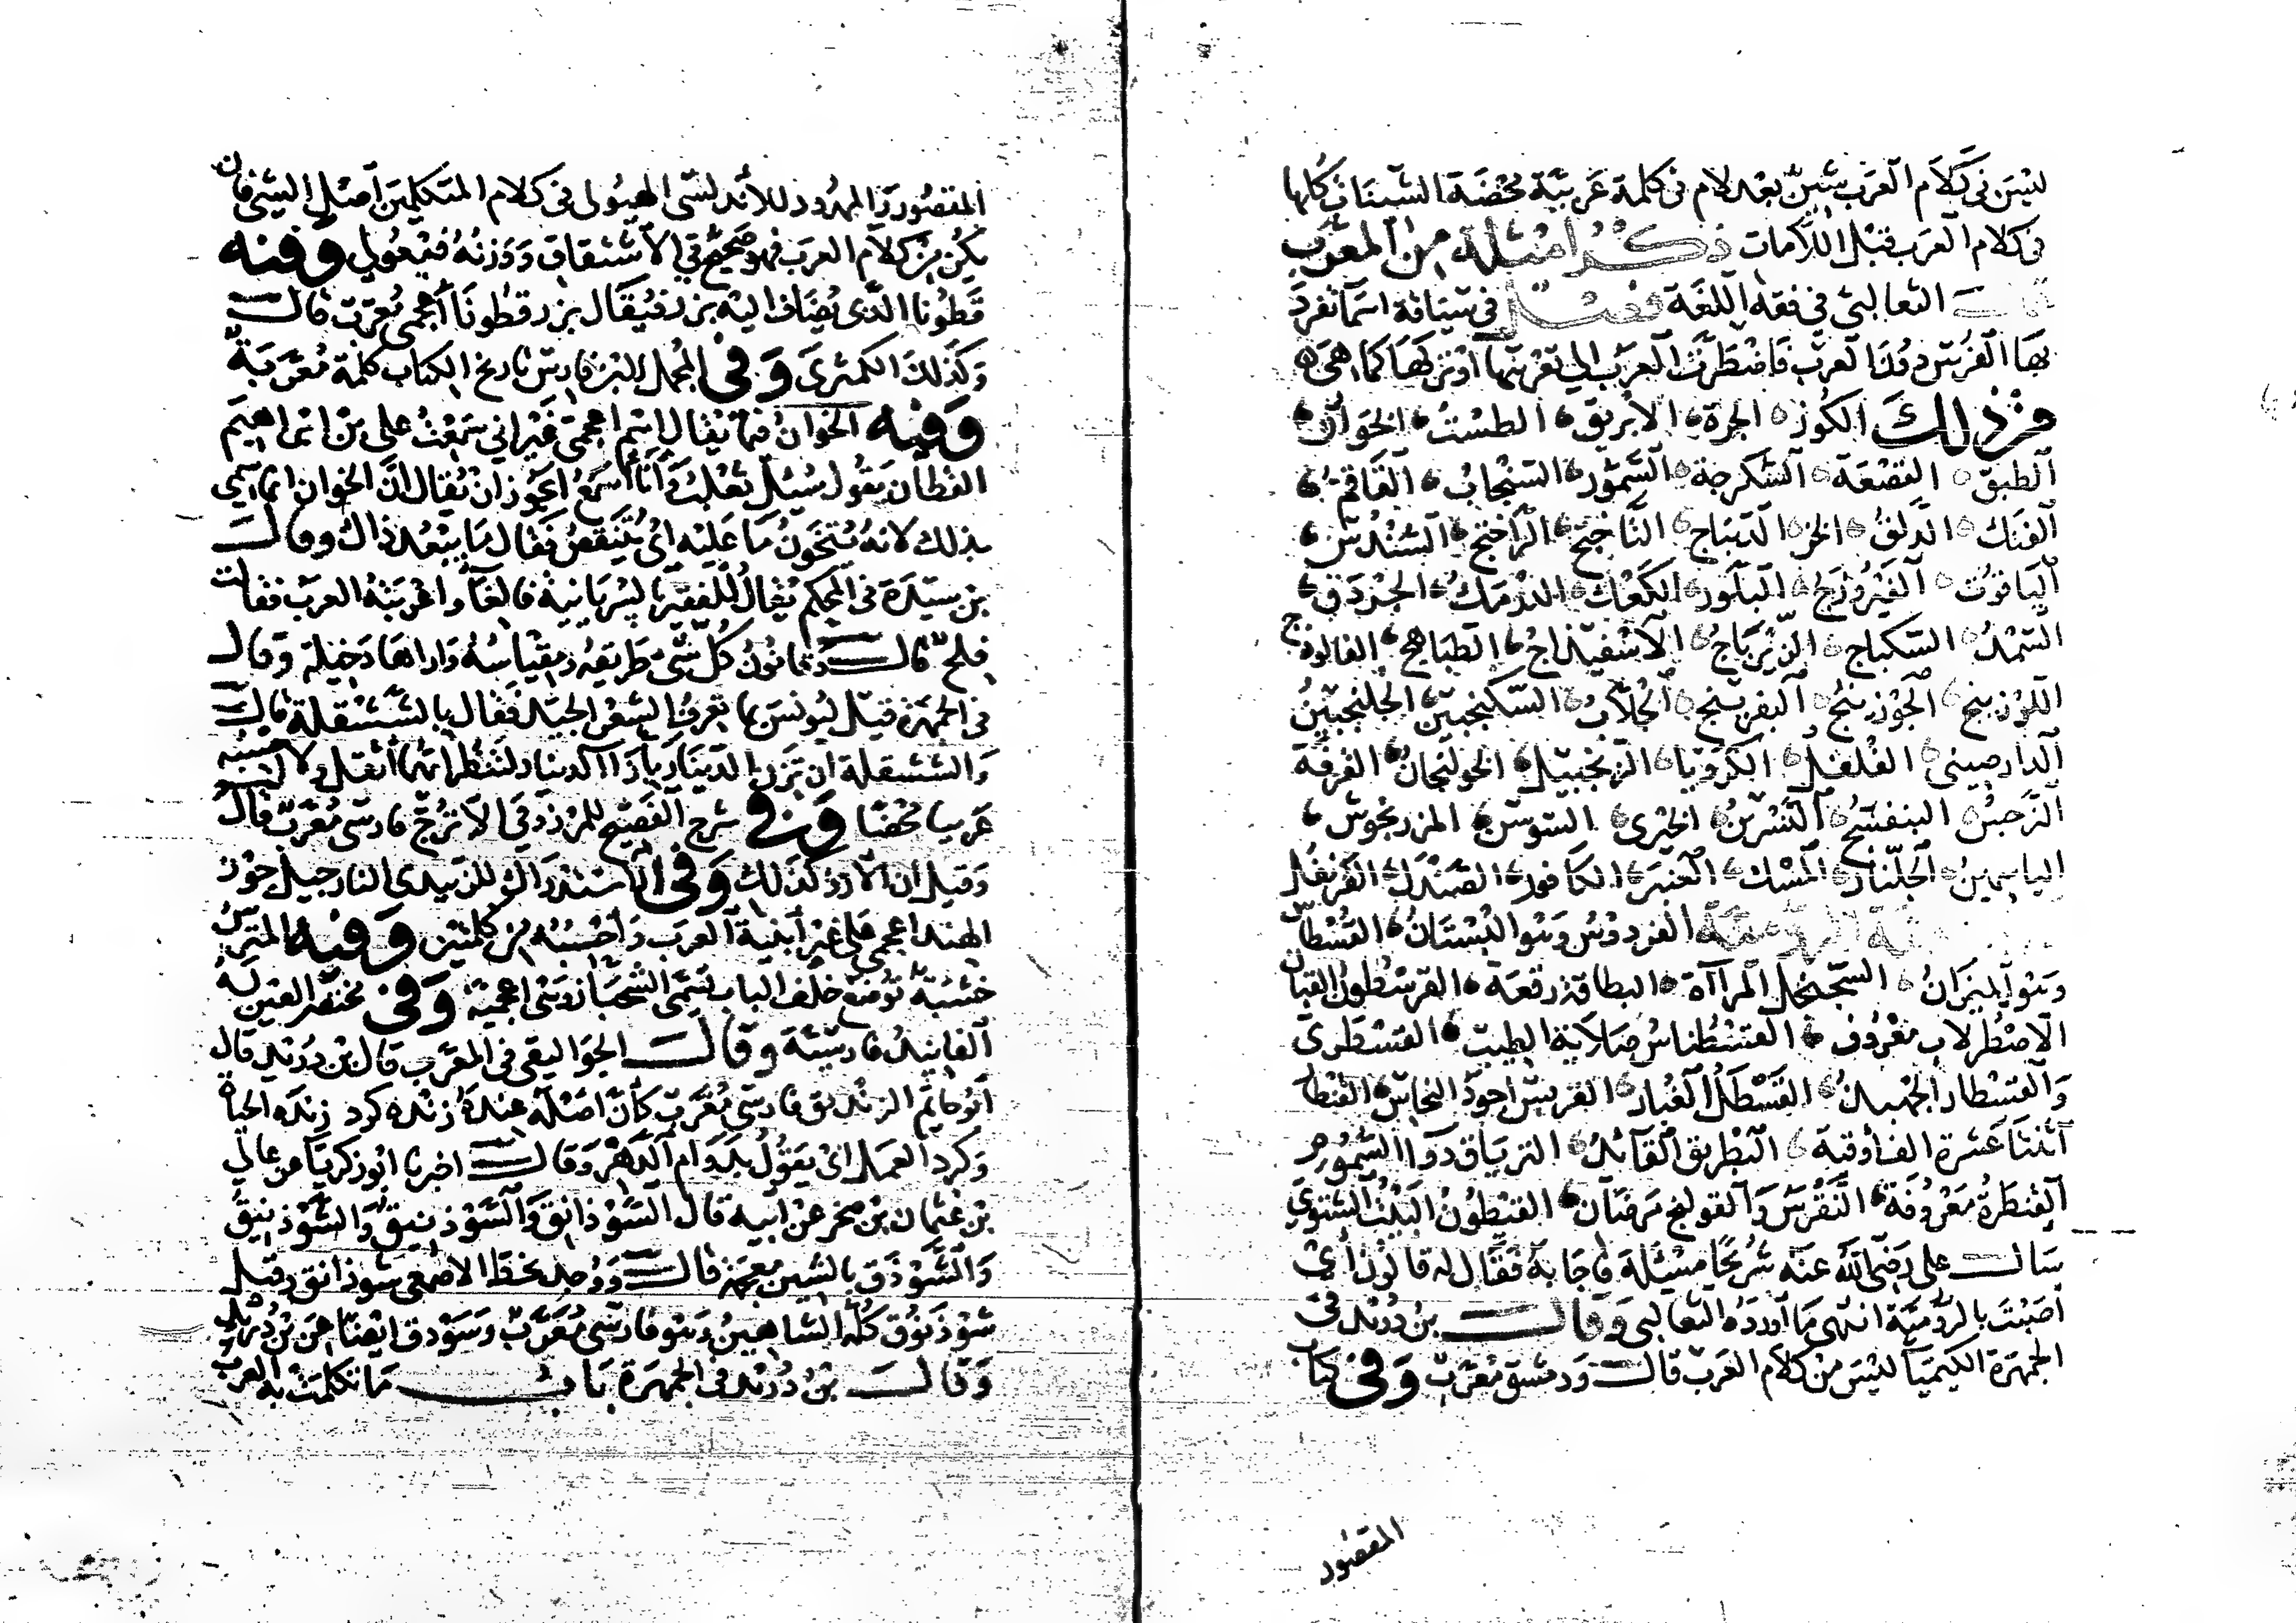 ليس في كلام العرب شين بعد لام في كلمة عربية محضة الشينات كلها
في كلام العرب قبل اللامات ذكر امثلة من المعرب
قال الثعالبي في فقه اللغة فصل في سياقة اسما تفرد
بها الفرس دون العرب فاضطرت العرب الي تعريبها او تركها كما هي
فمن ذلك الكوز الجرة الابريق الطست الخوان
الطبق القصعة السكرجة السمور السنجاب القاقم
الفنك الدلق الخز الديباج التاختج الراختج السندس
الياقوت الفيروزج البلور الكعك الدرمك الجردق
السميد السكباج الزيرباج الاسفيداج الطباهج الفالوذج
اللوزينج الجوزينج النفرينج الجلاب السكنجبين الجلنجبين
الدارصيني الفلفل الكرويا الزنجبيل الخولنجان القرفة
النرجس البنفسج النسرين الخيري السوسن المرزنجوش
الياسمين الجلنار المسك العنبر الكافور الصندل القرنفل
الرومية الفردوس وهو البستان القسطاس
وهو الميزان السجنجل المرآة البطاقة رقعة القرسطون القبان
الاصطرلاب معروف القسطناس صلاية الطيب القسطري
والقسطار الجهبذ القسطل الغبار القبرس اجود النحاس القنطار
اثنتا عشرة الف اوقية البطريق القائد الترياق دوا السموم
القنطرة معروفة النقرس والقولنج مرضان القيطون البيت الشتوي
سال علي رضي الله عنه شريحا مسئلة فاجابه فقال له قالون اي
اصبت بالرومية انتهى ما اورده الثعالبي وقال بن دريد في
الجمهرة الكيميا ليس من كلام العرب قال ودمشق معرب وفي كتاب
المقصور
المقصور والممدود للاندلسي الهيولي في كلام المتكلمين اصل الشي فان
يكن من كلام العرب فهو صحيح في الاشتقاق ووزنه فيعولي وفيه
قطونا الذي يضاف اليه بزر فيقال بزر قطونا اعجمي معرب قال
وكذلك الكمثرى وفي المجمل لابن فارس تاريخ الكتاب كلمة معربة
وفيه الخوان فيما يقال اسم اعجمي غير اني سمعت علي بن ابراهيم
القطان يقول سئل ثعلب وانا اسمع ايجوز ان يقال ان الخوان انما سمي
بذلك لانه يتخون ما عليه اي يتنقص فقال ما يبعد ذاك وقال
بن سيدة في المحكم يقال للفقير بالسريانية فالغا واعربته العرب فقالت
فلج قال وقانون كل شي طريقه ومقياسه واراها دخيلة وقال
في الجمهرة قيل ليونس بما تعرف الشعر الجيد فقال بالششقلة قال
والششقلة ان تزن الدينار بازا الدينار لتنظر ايهما اثقل ولا احسبه
عربيا محضا وفي شرح الفصيح للمرزوقي الاترج فارسي معرب قال
وقيل ان الارز كذلك وفي الاستدراك للزبيدي النارجيل جوز
الهند اعجمي على غير ابنية العرب واحسبه من كلمتين وفيه المترس
خشبة توضع خلف الباب تسمى الشجار وهي اعجمية وفي مختصر العين له
الفانيد فارسية وقال الجواليقي في المعرب قال بن دريد قال
ابو حاتم الزنديق فارسي معرب كان اصله عنده زنده كرد زنده الحياة
وكرد العمل اي يقول بدوام الدهر وقال اخبرنا ابو زكريا عن عالي
بن عثمان بن مخر عن ابيه قال السوذانق والسوذنيق والشوذنيق
والشوذق بالشين معجمة قال ووجد بخط الاصمعي شوذانق وقيل
شوذنوق كله الشاهين وهو فارسي معرب وسودق ايضا عن بن دريد
وقال بن دريد في الجمهرة باب ما تكلمت به العرب